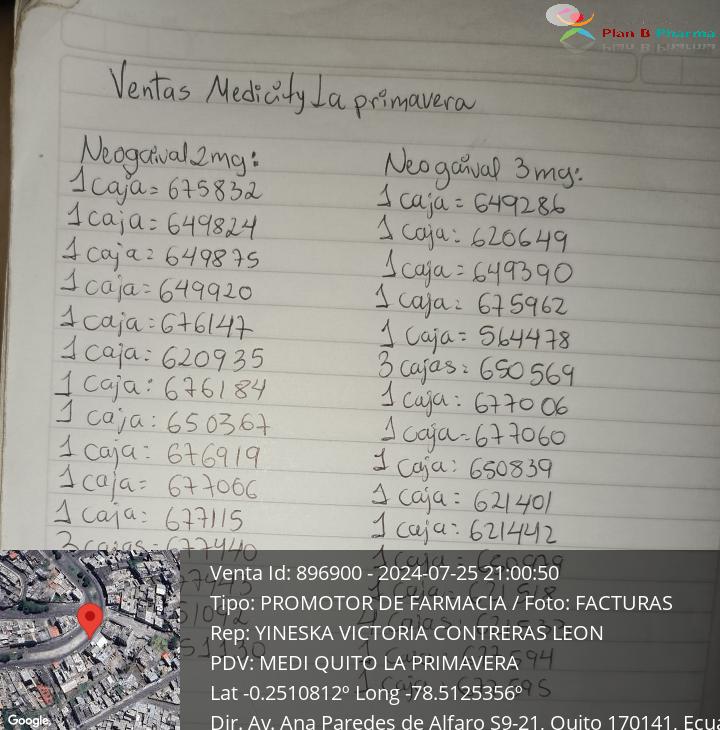 Plan B Pharma
Ventas Medicity La primavera
Neogaival 2mg:
1 caja = 675832
1 caja = 649824
1 caja = 649875
1 caja = 649920
1 caja = 676147
1 caja: 620935
1 caja: 676184
1 caja: 650367
1 caja: 676919
1 caja = 677066
1 caja: 677115
3 cajas = 677440
Neogaival 3mg:
1 caja = 649286
1 caja: 620649
1 caja = 649390
1 caja: 675962
1 caja = 564478
3 cajas: 650569
1 caja: 677006
1 caja = 677060
1 caja: 650839
1 caja = 621401
1 caja: 621442
Venta Id: 896900 - 2024-07-25 21:00:50
Tipo: PROMOTOR DE FARMACIA / Foto: FACTURAS
Rep: YINESKA VICTORIA CONTRERAS LEON
PDV: MEDI QUITO LA PRIMAVERA
Lat -0.2510812º Long -78.5125356º
Dir. Av. Ana Paredes de Alfaro S9-21, Quito 170141, Ecua
Google